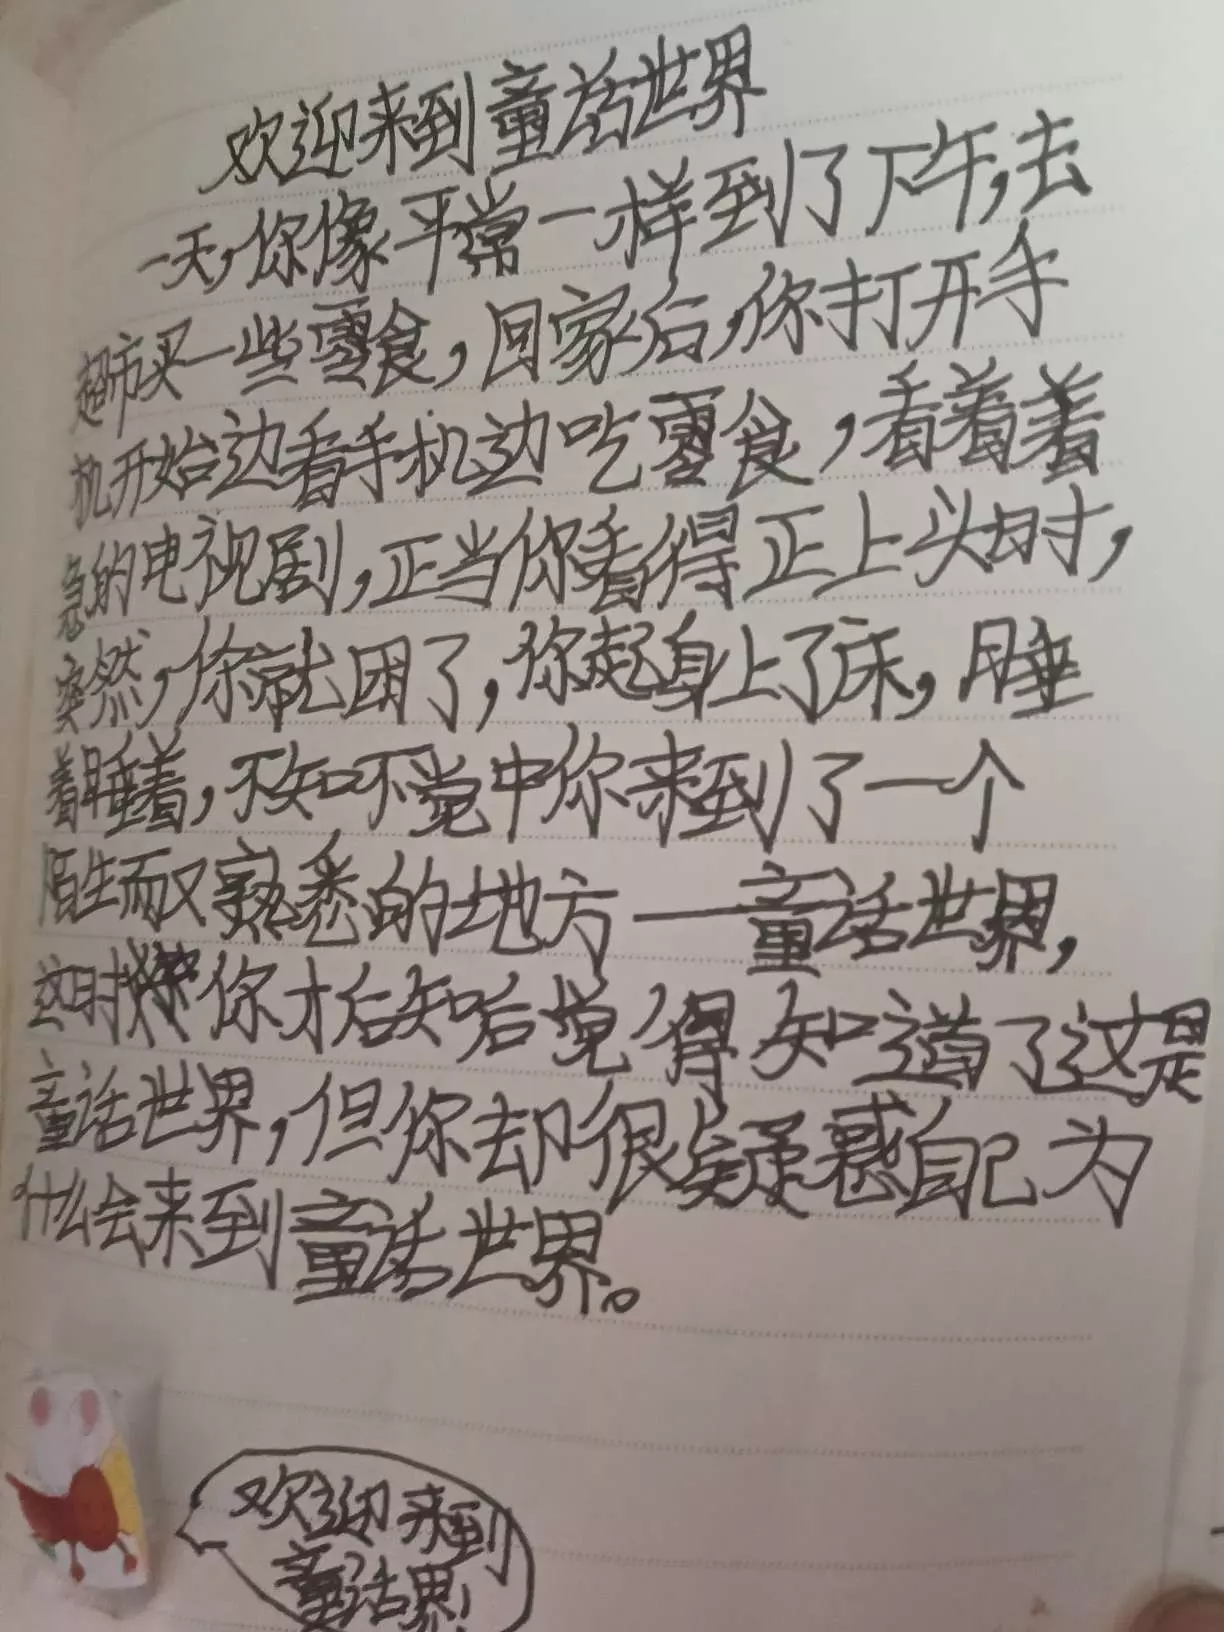 欢迎来到童话世界
一天,你像平常一样到了下午,去
超市买一些零食,回家后,你打开手
机开始边看手机边吃零食,看着着
急的电视剧,正当你看得正上头时,
突然,你就困了,你起身上了床,睡
着睡着,不知不觉中你来到了一个
陌生而又熟悉的地方——童话世界,
这时你才后知后觉得知道了这是
童话世界,但你却很疑惑自己为
什么会来到童话世界。
欢迎来到
童话界!